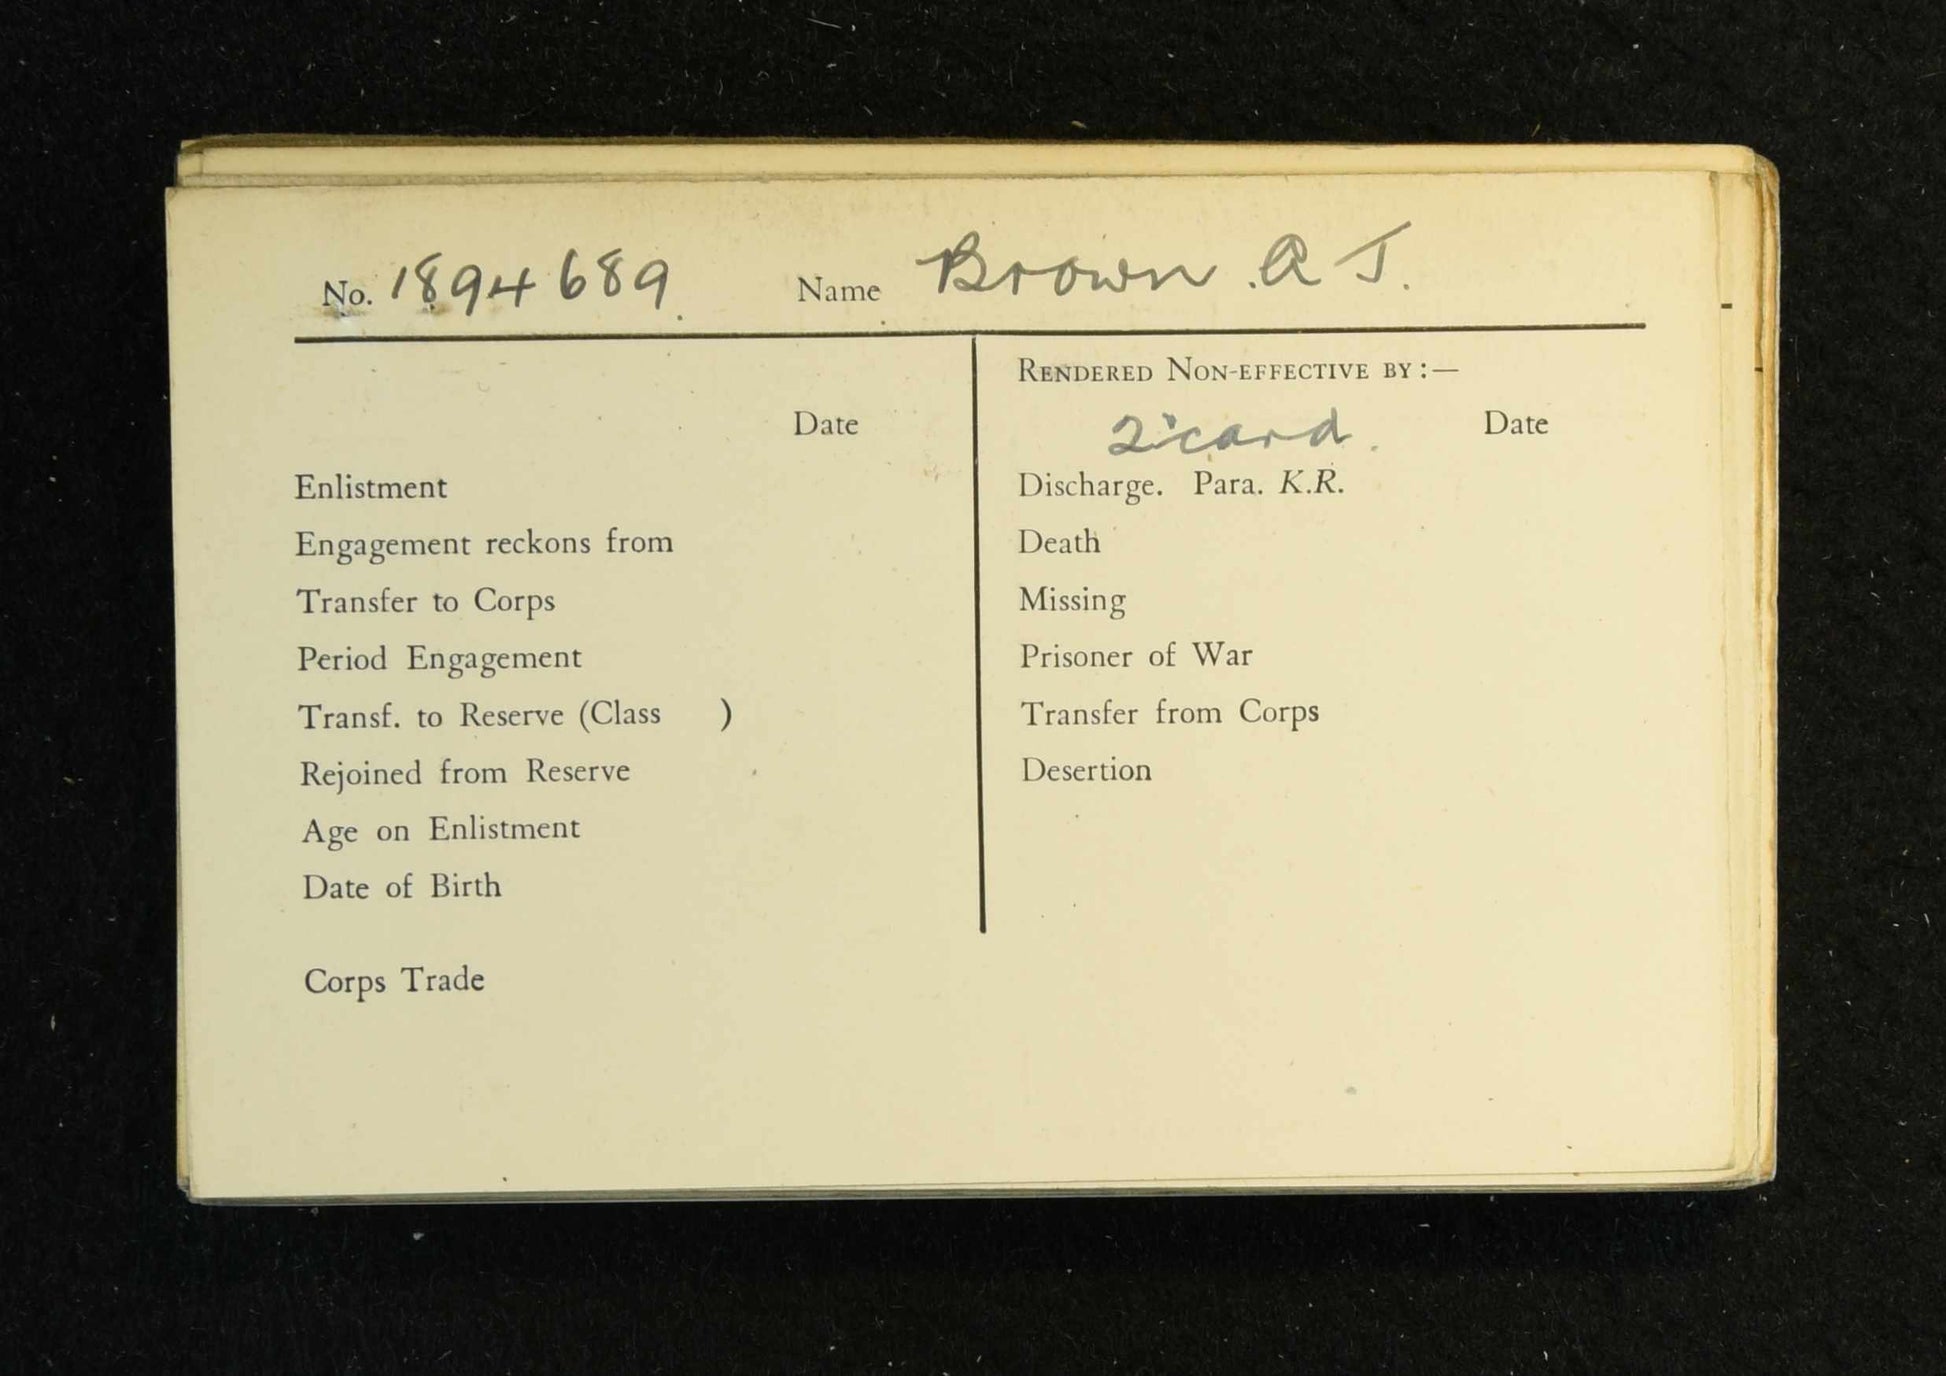 No. 1894689. Name Brown. A J.
RENDERED NON-EFFECTIVE BY :—
Date
2 card. Date
Enlistment
Discharge. Para. K.R.
Engagement reckons from
Death
Transfer to Corps
Missing
Period Engagement
Prisoner of War
Transf. to Reserve (Class )
Transfer from Corps
Rejoined from Reserve
Desertion
Age on Enlistment
Date of Birth
Corps Trade